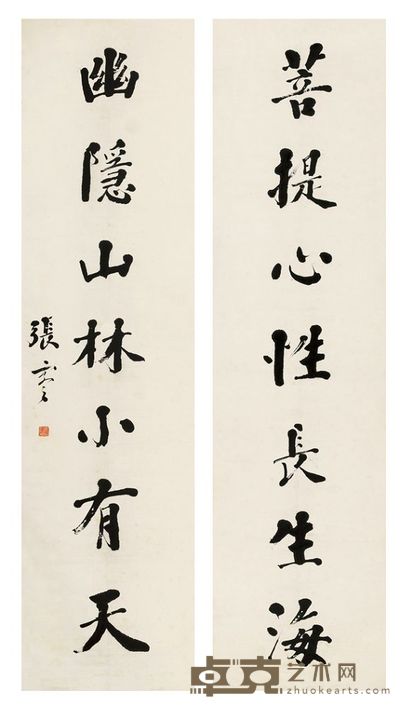 菩提心性長生海
幽隱山林小有天
張
卓克艺术网
zhuokearts.com